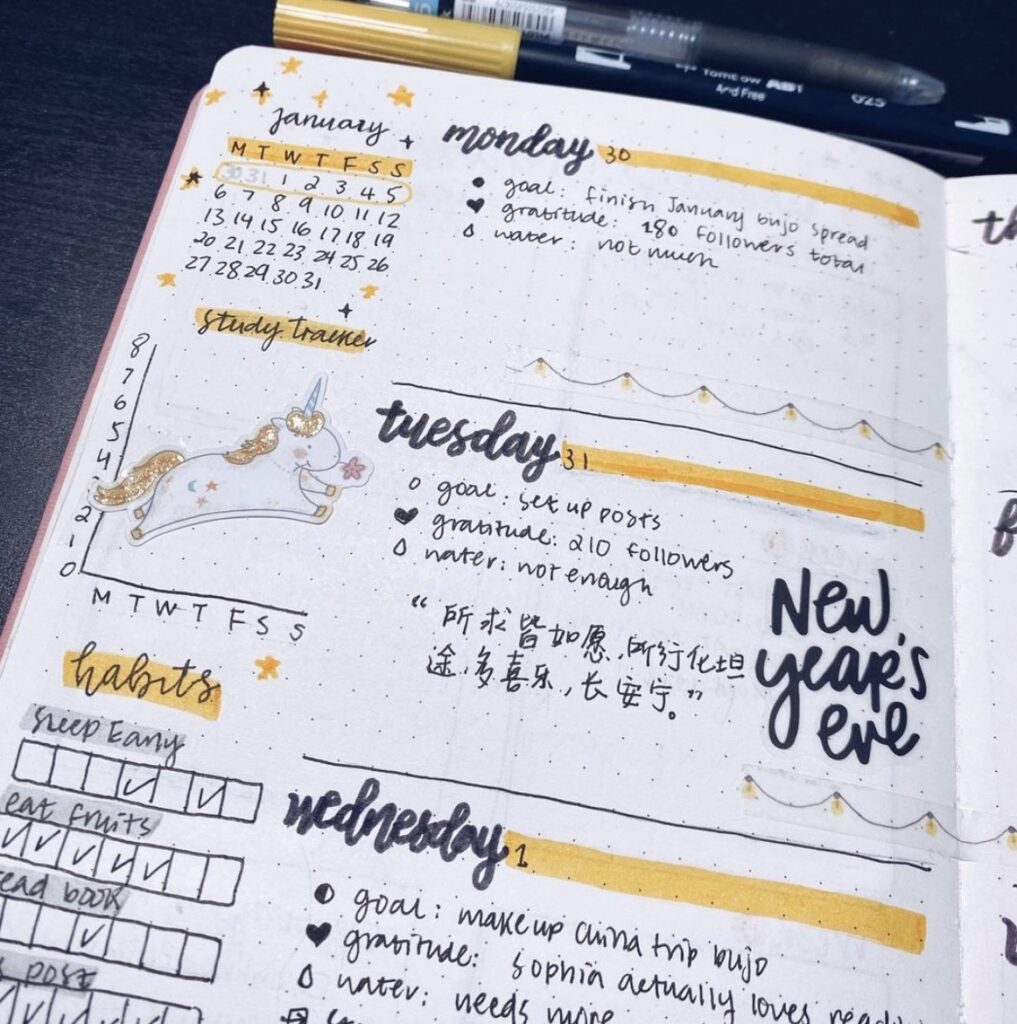 Tombow ABT
And Free
025
January
M T W T F S S
30 31 1 2 3 4 5
6 7 8 9 10 11 12
13 14 15 16 17 18 19
20 21 22 23 24 25 26
27 28 29 30 31
study tracker
8
7
6
5
4
2
1
0
M T W T F S S
habits
sleep Early
eat fruits
read book
post
monday 30
goal: finish January bujo spread
gratitude: 180 followers total
water: not much
tuesday 31
goal: set up posts
gratitude: 210 followers
water: not enough
“所求皆如愿,所行化坦
途,多喜乐,长安宁。”
New
year's
eve
wednesday 1
goal: make up china trip bujo
gratitude: sophia actually loves
water: needs more